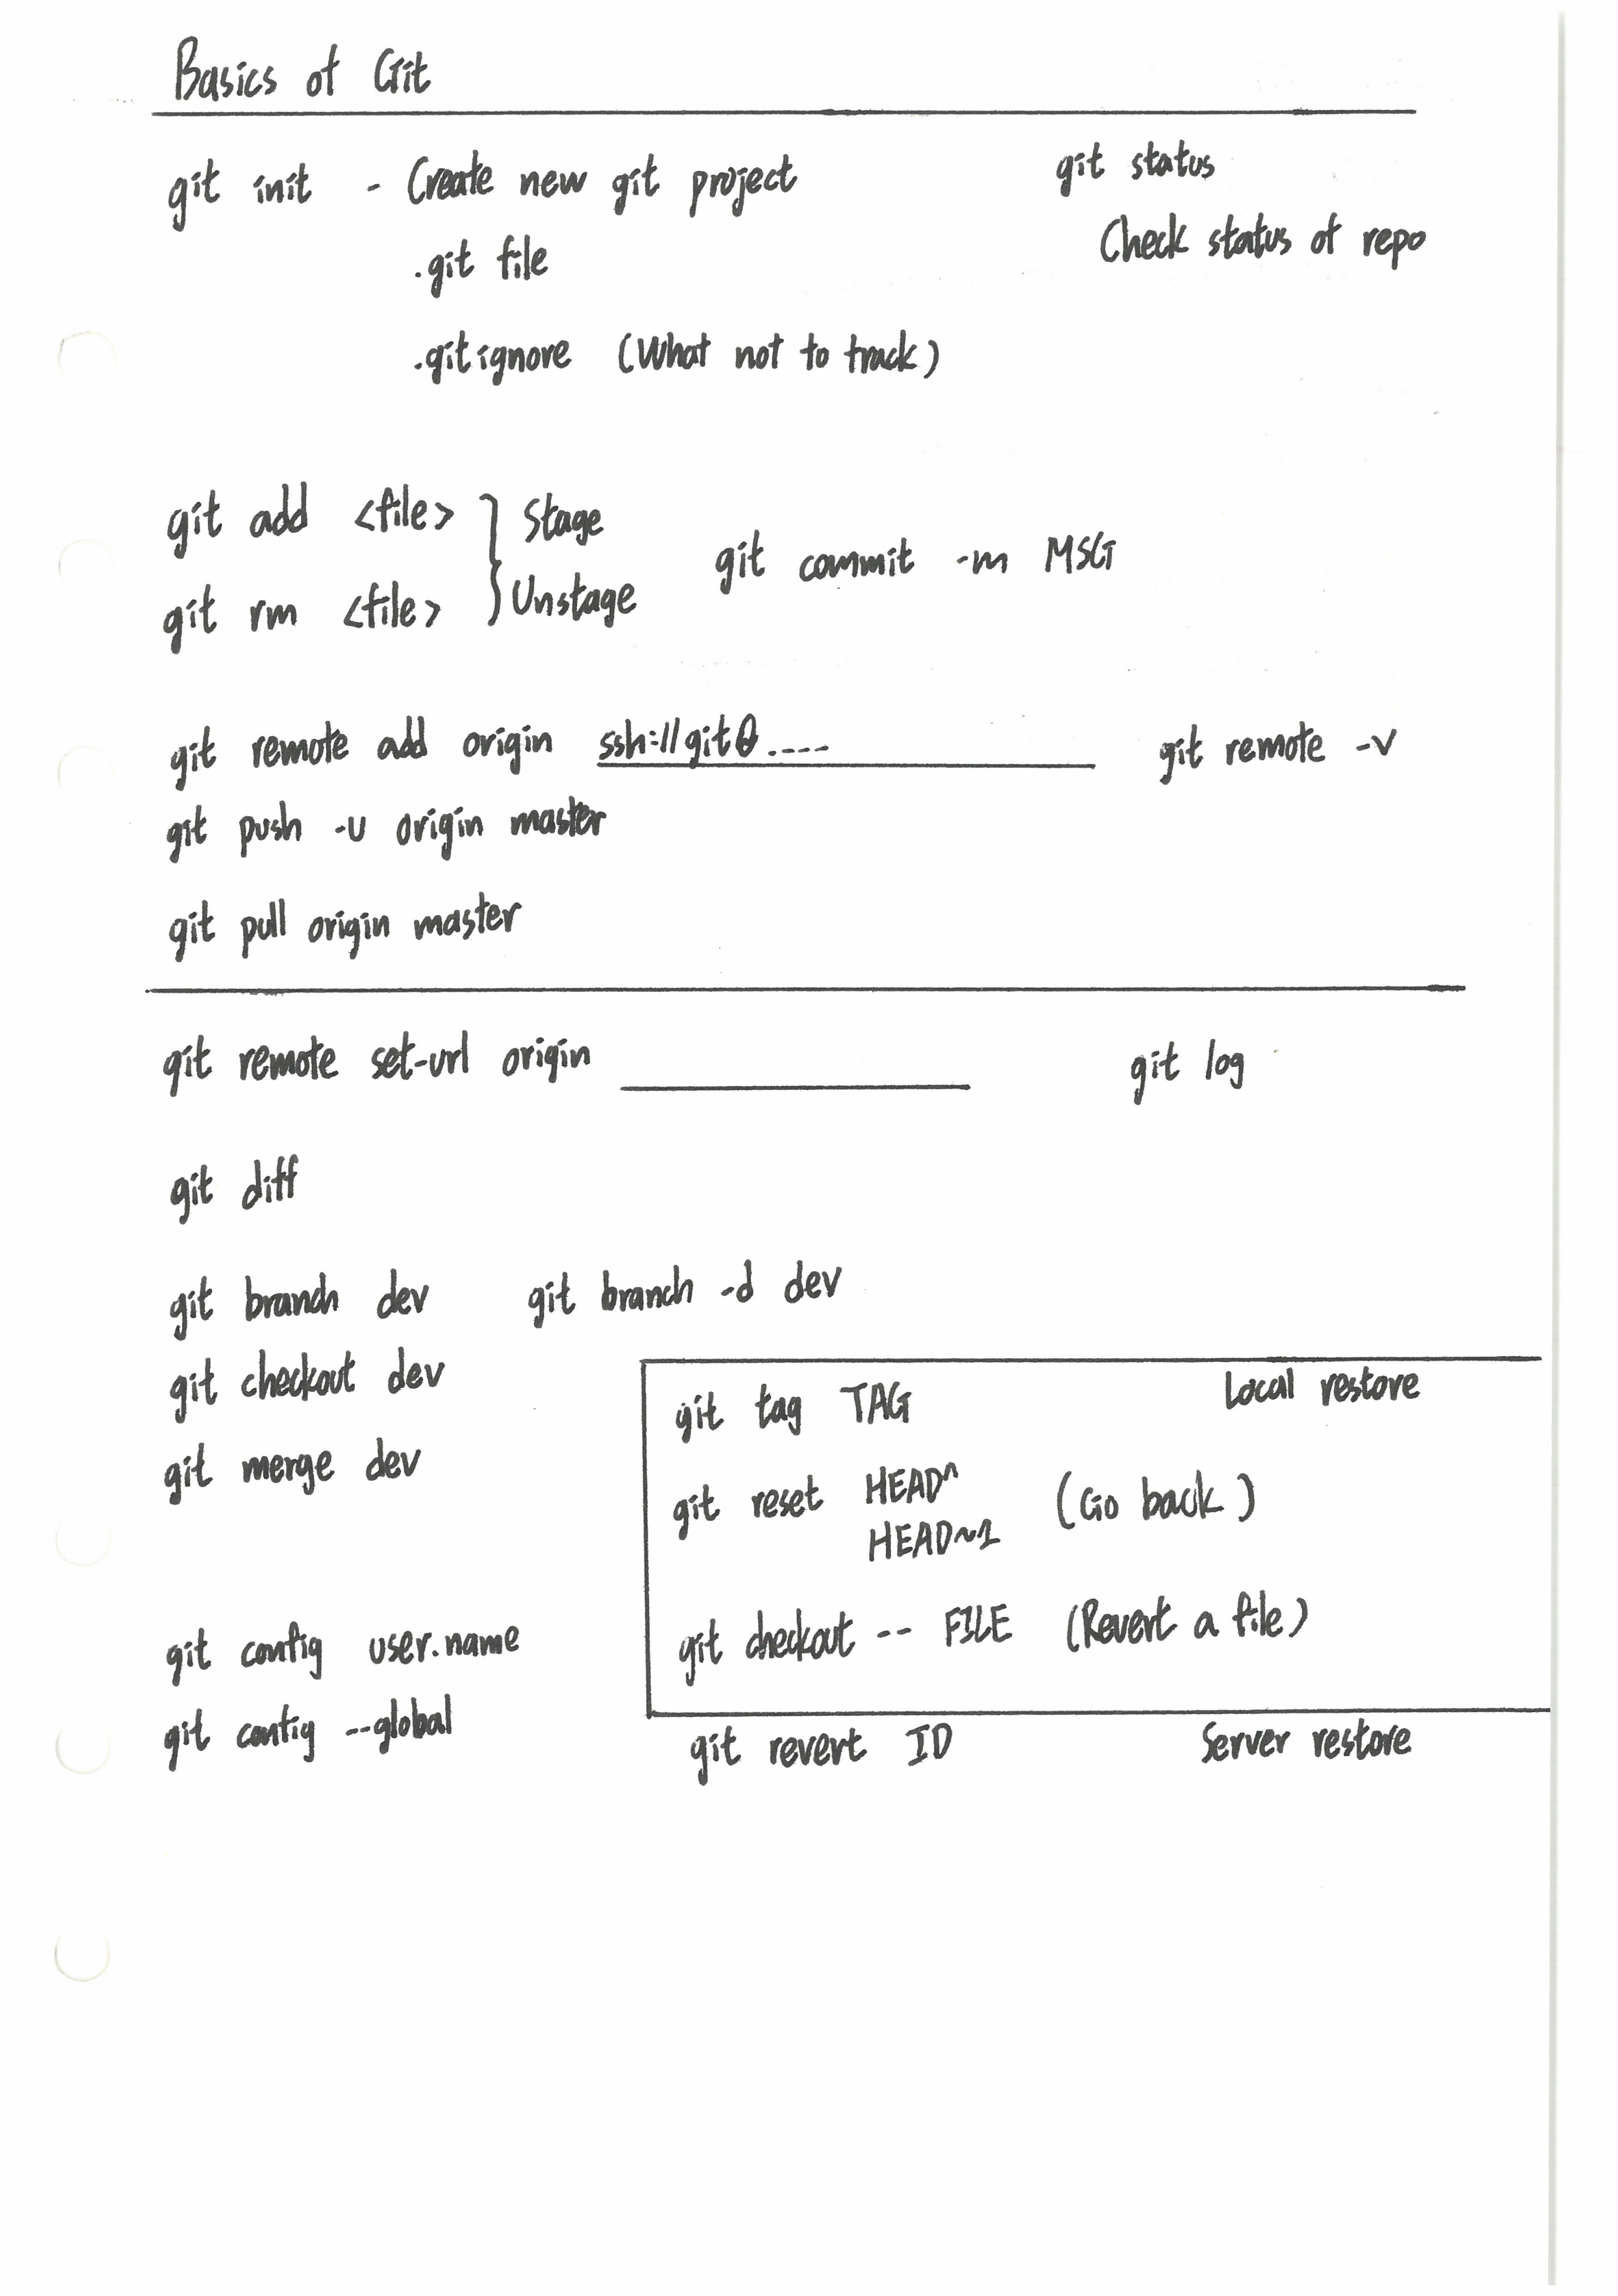 Basics of Git
git init - Create new git project
git status
Check status of repo
.git file
.gitignore (What not to track)
git add <file> } Stage
git rm <file> } Unstage
git commit -m MSG
git remote add origin ssh://git@....
git remote -v
git push -u origin master
git pull origin master
git remote set-url origin
git log
git diff
git branch dev
git branch -d dev
git checkout dev
git merge dev
git tag TAG
Local restore
git reset HEAD^ (Go back)
HEAD~1
git checkout -- FILE (Revert a file)
git config user.name
git config --global
git revert ID
Server restore